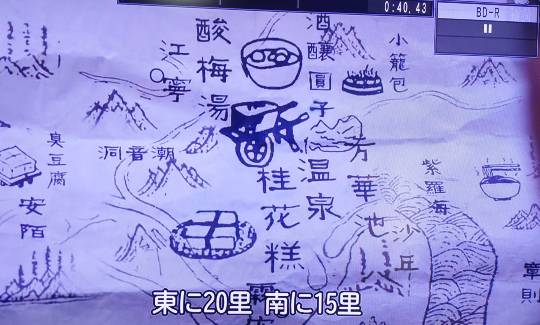 0:40.43
BD-R
酸梅湯
江寧
酒釀圓子
小籠包
臭豆腐
洞音潮
温泉
芳華
紫羅海
安陌
桂花糕
沙丘
章則
東に20里 南に15里